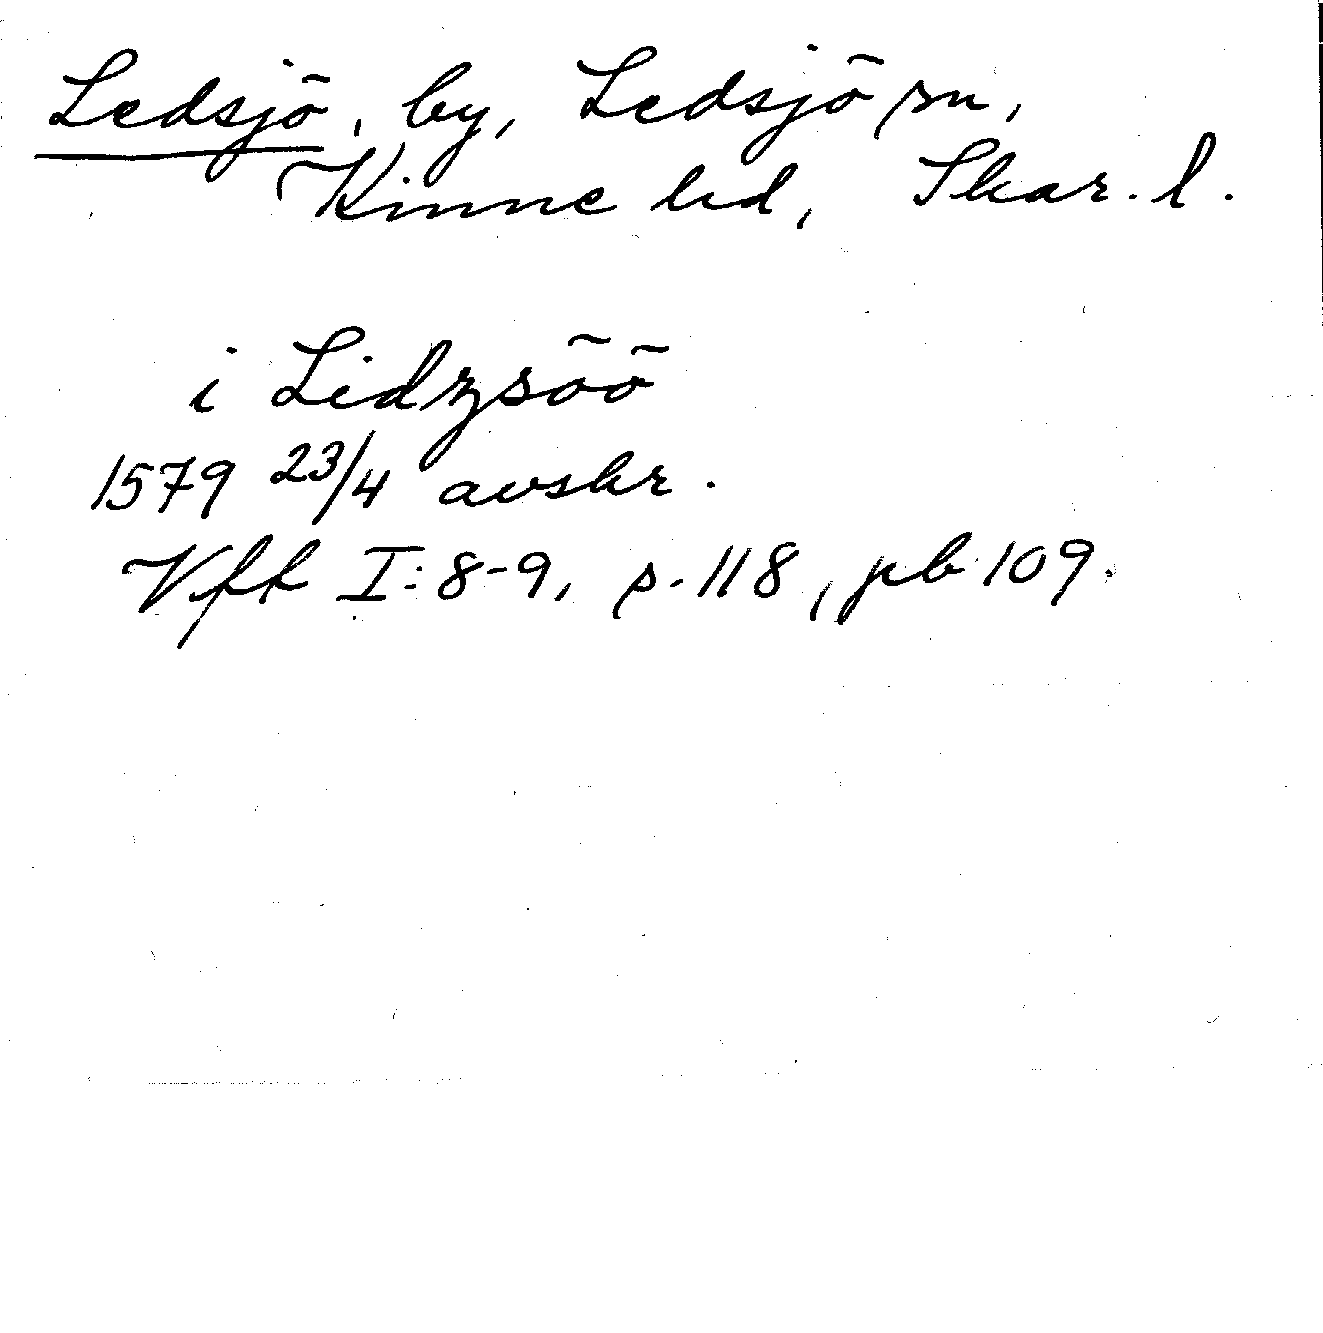 Ledsjö, by, Ledsjö sn,
Kinne hd, Skar. l.
i Lidzsöö
1579 23/4 avskr.
Vfft I:8-9, s. 118, pb 109.